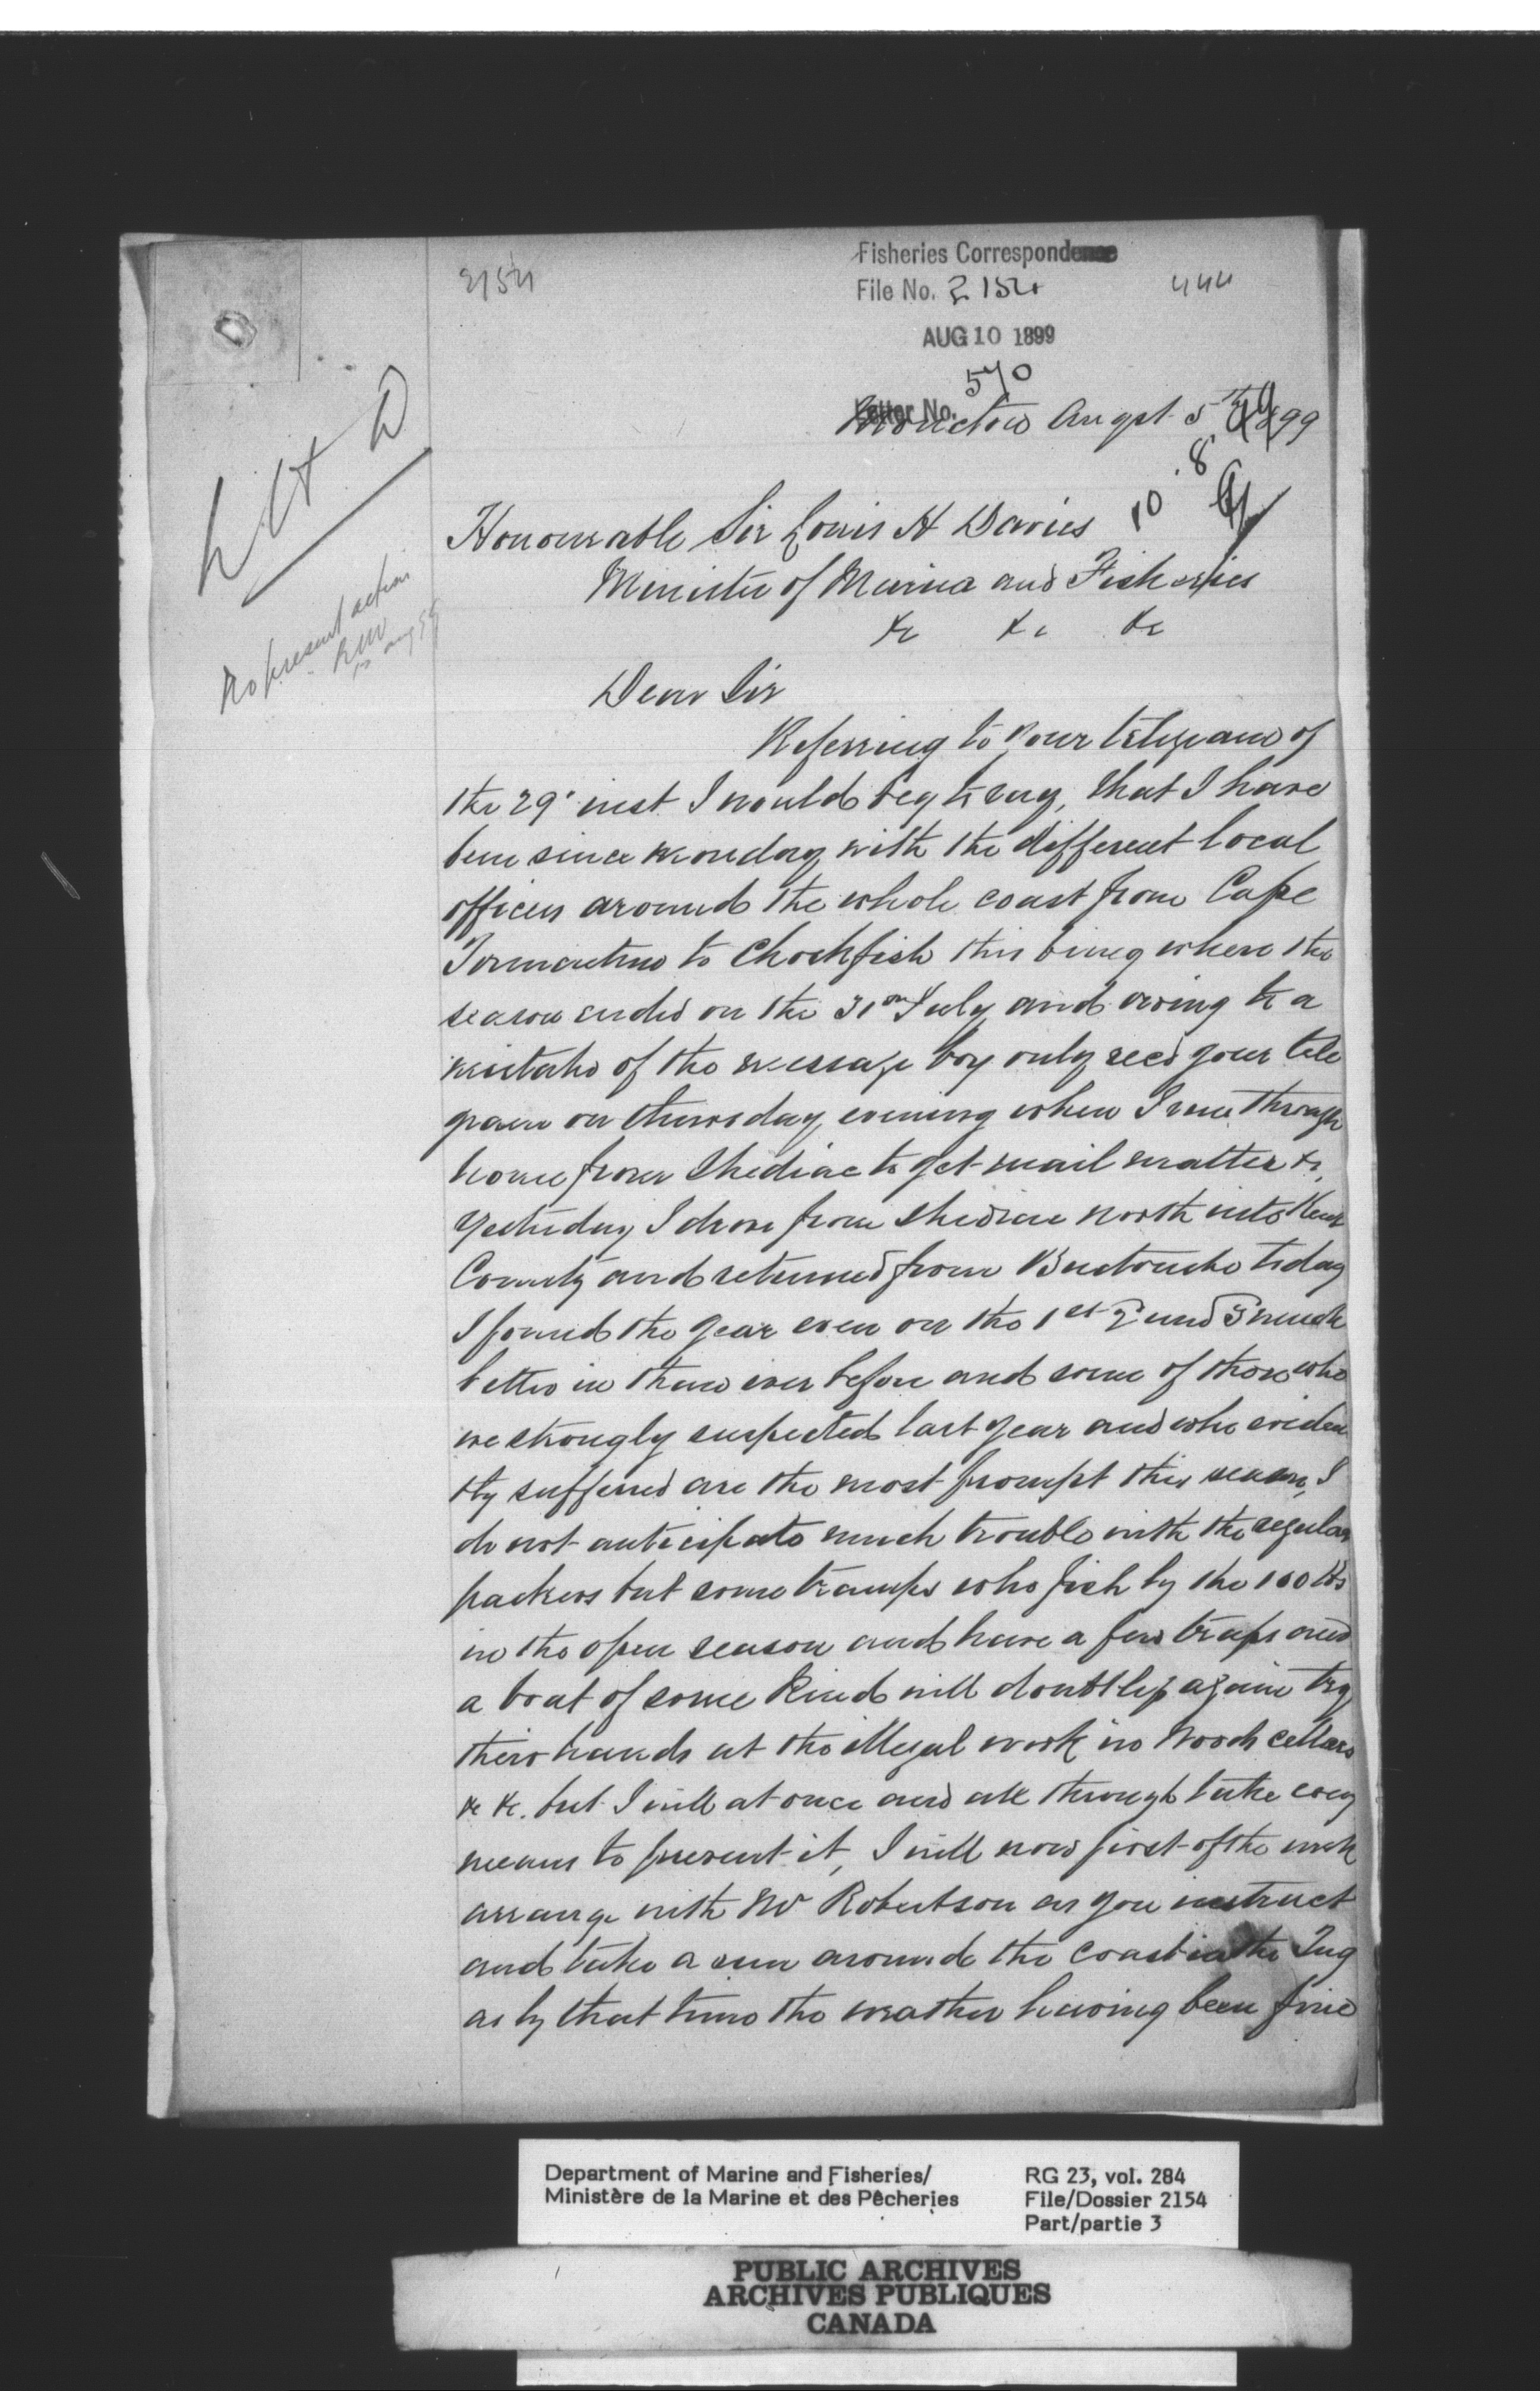 2154
Fisheries Correspondence
File No. 2154
444
AUG 10 1899
Letter No. 570
Moncton Augst 5th 1899
10.8
No present action
RNV
10 Aug 99
Honourable Sir Louis H Davies
Minister of Marine and Fisheries
&c &c &c
Dear Sir
Referring to your telegram of
the 29' inst I would beg to say, that I have
been since monday with the different local
officers around the whole coast from Cape
Tormentine to Chockfish this being when the
season ended on the 31st July and owing to a
mistake of the message boy only recd your tele
gram on thursday evening when I run through
home from Shediac to get mail matter &c,
Yesterday I drove from Shediac north into Kent
County and returned from Buctouche today
I found the gear even on the 1st 2 and 3 much
better in than ever before and some of those who
we strongly suspected last year and who eviden
tly suffered are the most prompt this season, I
do not anticipate much trouble with the regular
packers but some tramps who fish by the 100 lbs
in the open season and have a few traps and
a boat of some kind will doubtless again try
their hands at the illegal work in woods cellars
&c &c. but I will at once and all through take every
means to prevent it, I will now first of the week
arrange with Mr Robertson as you instruct
and take a run around the coast in the Tug
as by that time the weather having been fine
Department of Marine and Fisheries/
Ministère de la Marine et des Pêcheries
RG 23, vol. 284
File/Dossier 2154
Part/partie 3
PUBLIC ARCHIVES
ARCHIVES PUBLIQUES
CANADA